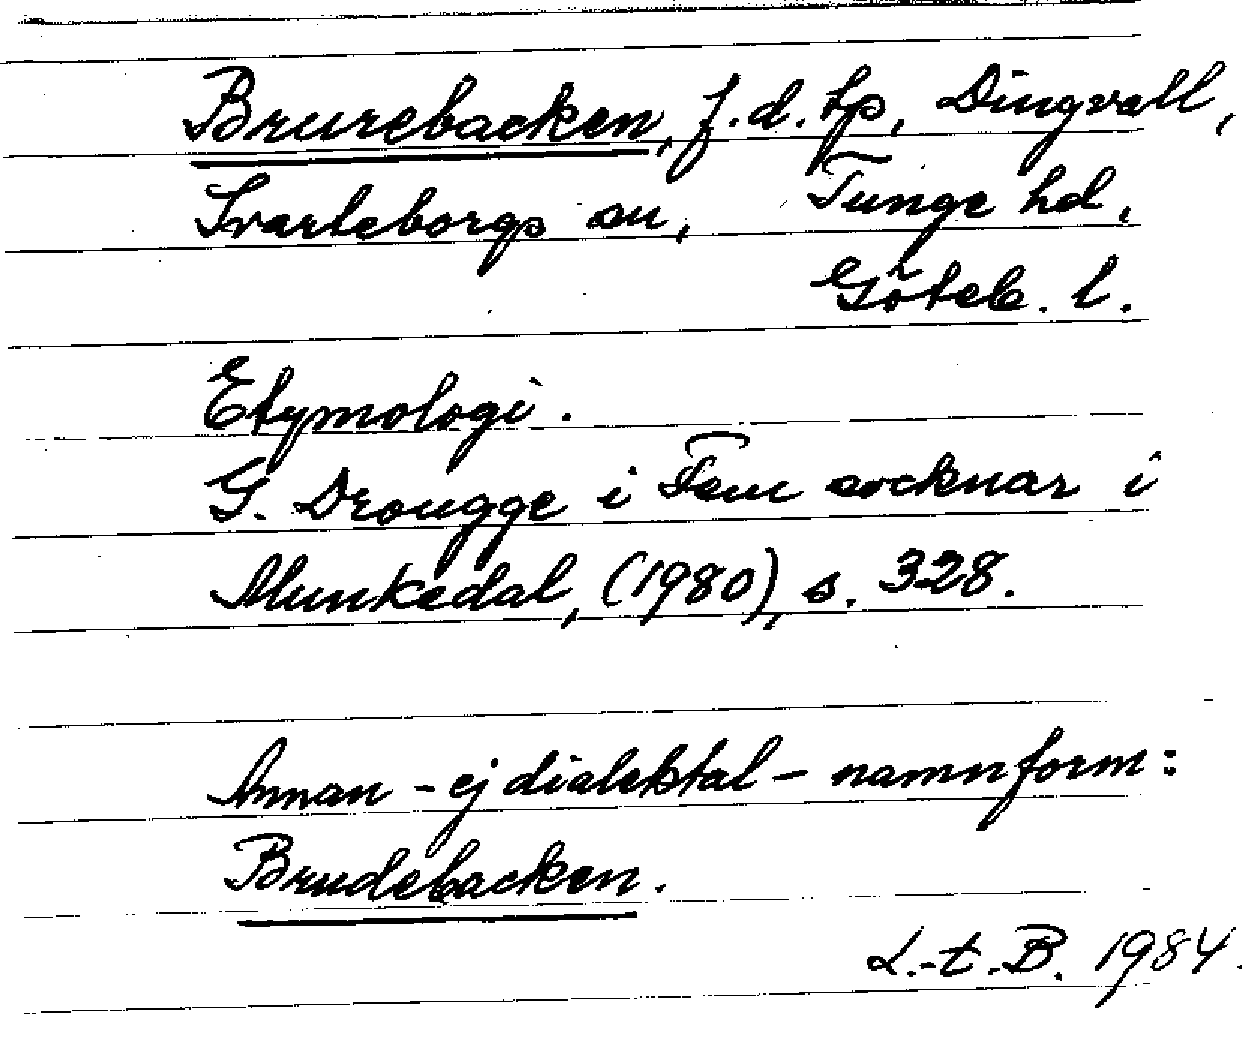 Brurebacken, f.d. tp, Dingvall,
Svarteborgs sn, Tunge hd,
Göteb. l.
Etymologi.
G. Drougge i Fem socknar i
Munkedal, (1980), s. 328.
Annan - ej dialektal - namnform:
Brudebacken.
L.-t.B. 1984.